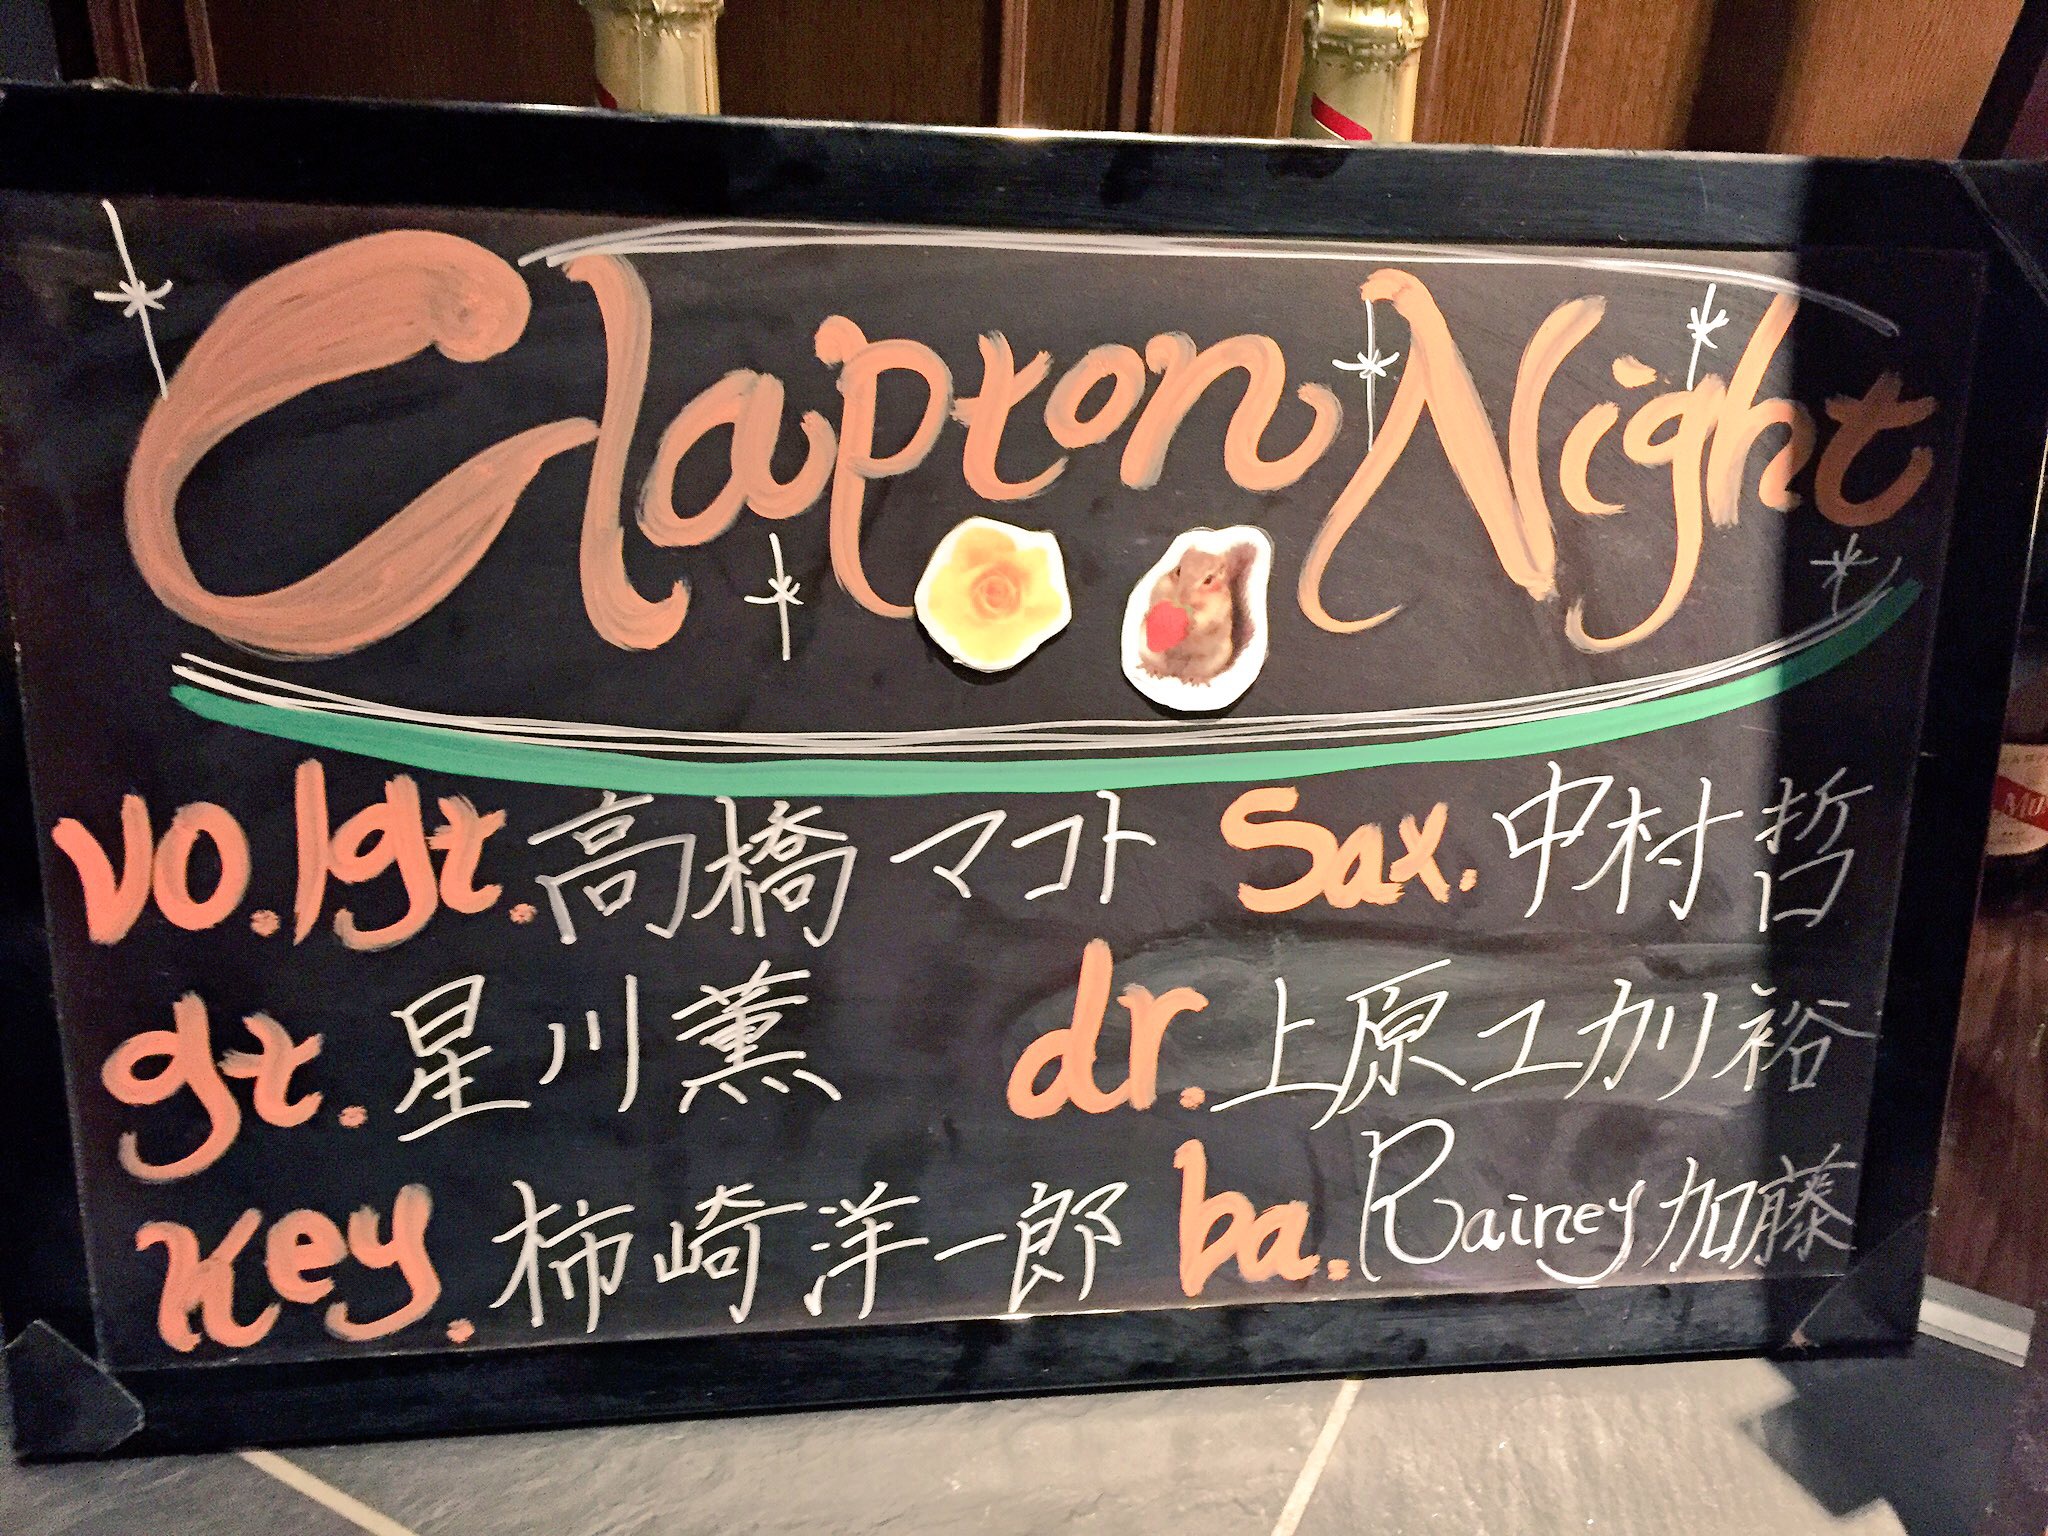 Clapton Night
vo./gt. 高橋 マコト Sax. 中村 哲
gt. 星川 薫 dr. 上原 ユカリ 裕
Key. 柿崎 洋一郎 ba. Rainey 加藤